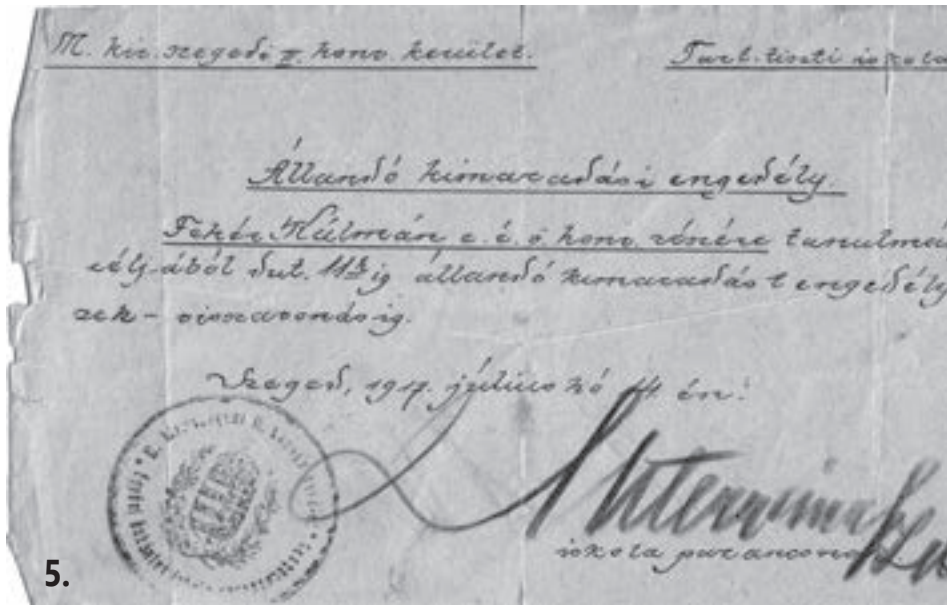 M. kir. szegedi II. honv. kerület. Tart. tiszti iskola
Állandó kimaradási engedély.
Fehér Kálmán e. é. ö. honv. részére tanulmá
céljából du. 11h ig állandó kimaradást engedély
zek - visszavonásig.
Szeged, 1917. július hó 14 én.
iskola parancsnok
5.